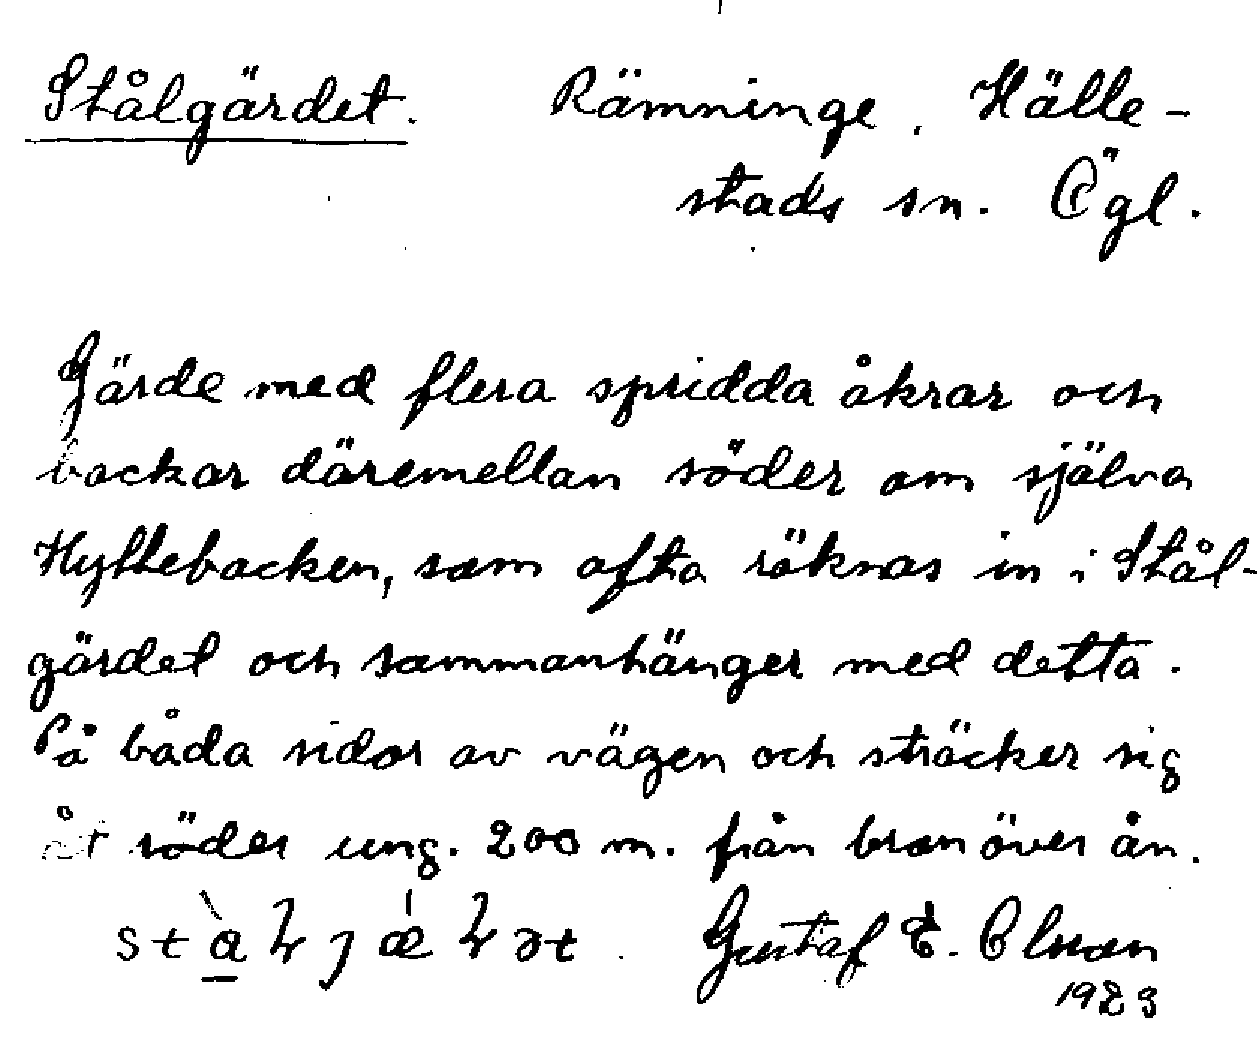 Stålgärdet. Rämninge. Hälle-
stads sn. Ögl.
Gärde med flera spridda åkrar och
backar däremellan söder om själva
Hyttebacken, som ofta räknas in i Stål-
gärdet och sammanhänger med detta.
På båda sidor av vägen och sträcker sig
åt söder ung. 200 m. från bron över ån.
Gustaf E. Olsson
1923